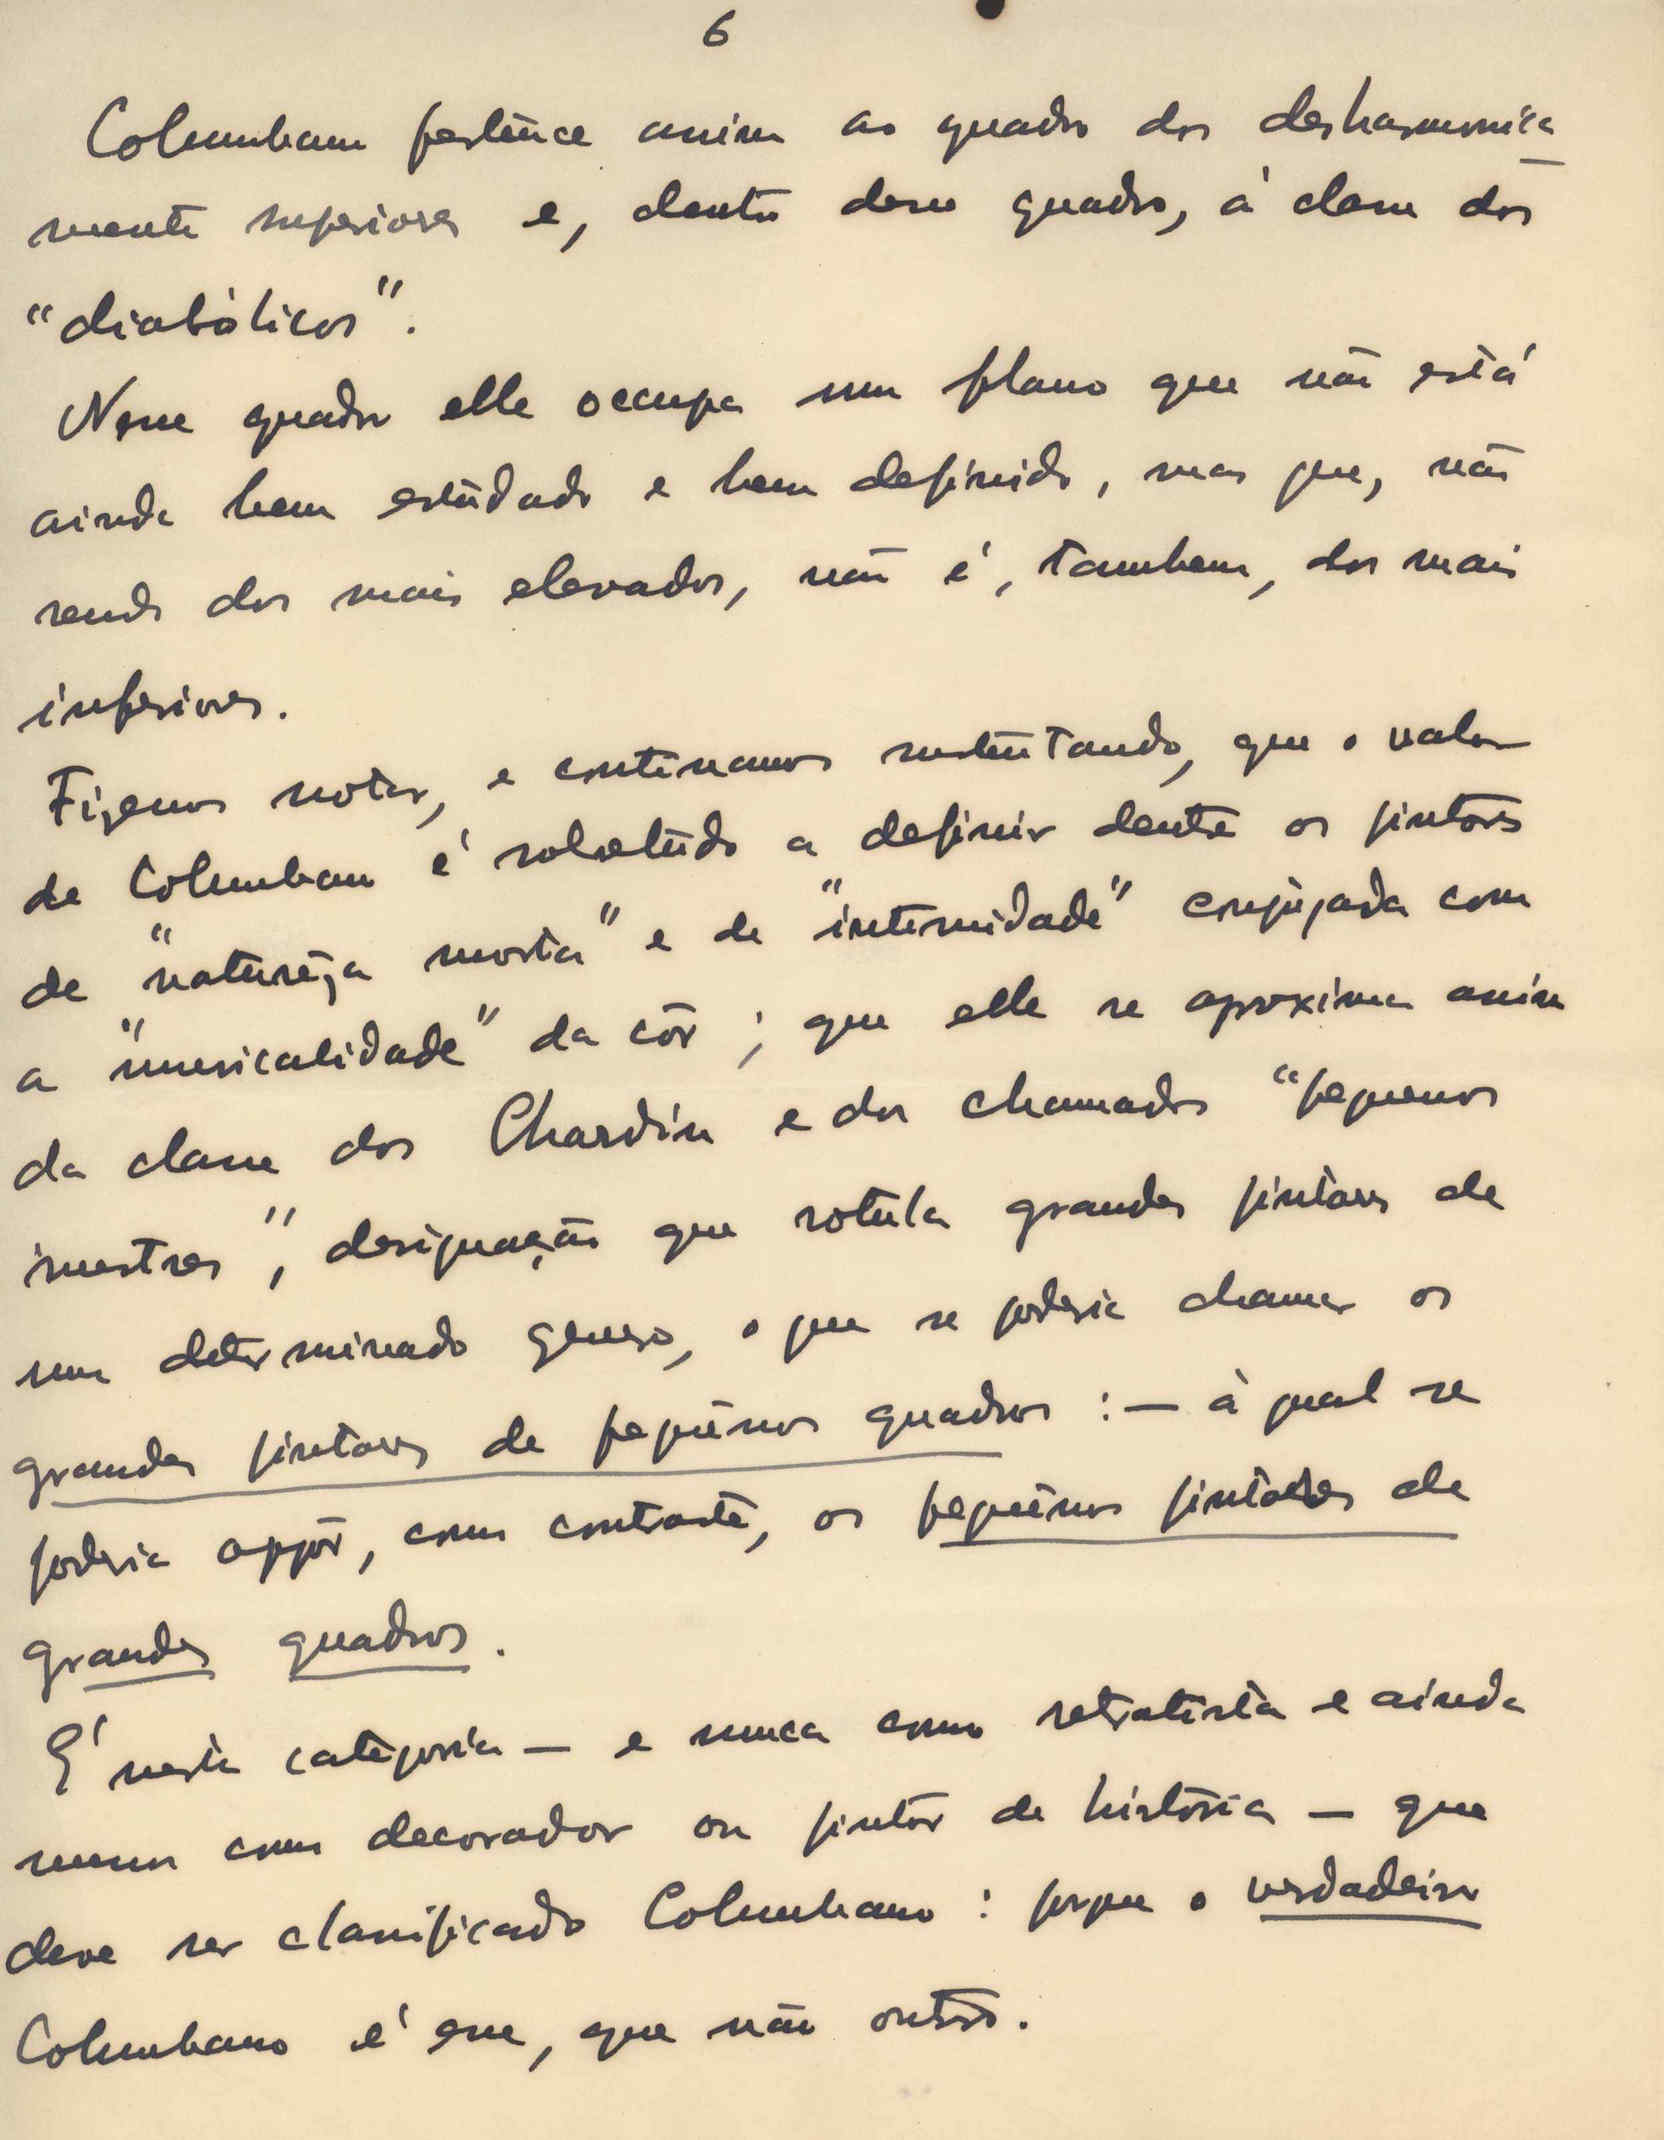 6
Columbano pertence assim ao quadro dos desharmonica
mente superiores e, dentro desse quadro, á classe dos
"diabólicos".
Nesse quadro elle occupa um plano que não está
ainda bem estudado e bem definido, mas que, não
sendo dos mais elevados, não é, tambem, dos mais
inferiores.
Fizemos notar, e continuamos sustentando, que o valor
de Columbano é sobretudo a definir dentre os pintores
de "natureza morta" e de "intimidade" conjugada com
a "musicalidade" da côr; que elle se aproxima assim
da classe dos Chardin e dos chamados "pequenos
mestres", designação que rotula grandes pintores de
um determinado genero, o que se poderia chamar os
grandes pintores de pequenos quadros : — à qual se
poderia oppôr, como contraste, os pequenos pintores de
grandes quadros.
É nesta categoria — e nunca como retratista e ainda
menos como decorador ou pintor de história — que
deve ser classificado Columbano : porque o verdadeiro
Columbano é esse, que não outro.